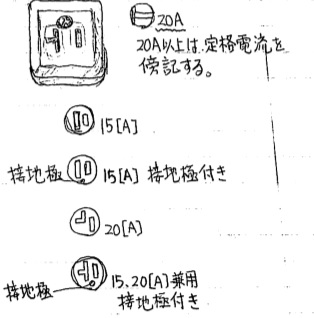 20A
20A以上は定格電流を
傍記する。
15[A]
接地極
15[A] 接地極付き
20[A]
接地極
15、20[A]兼用
接地極付き